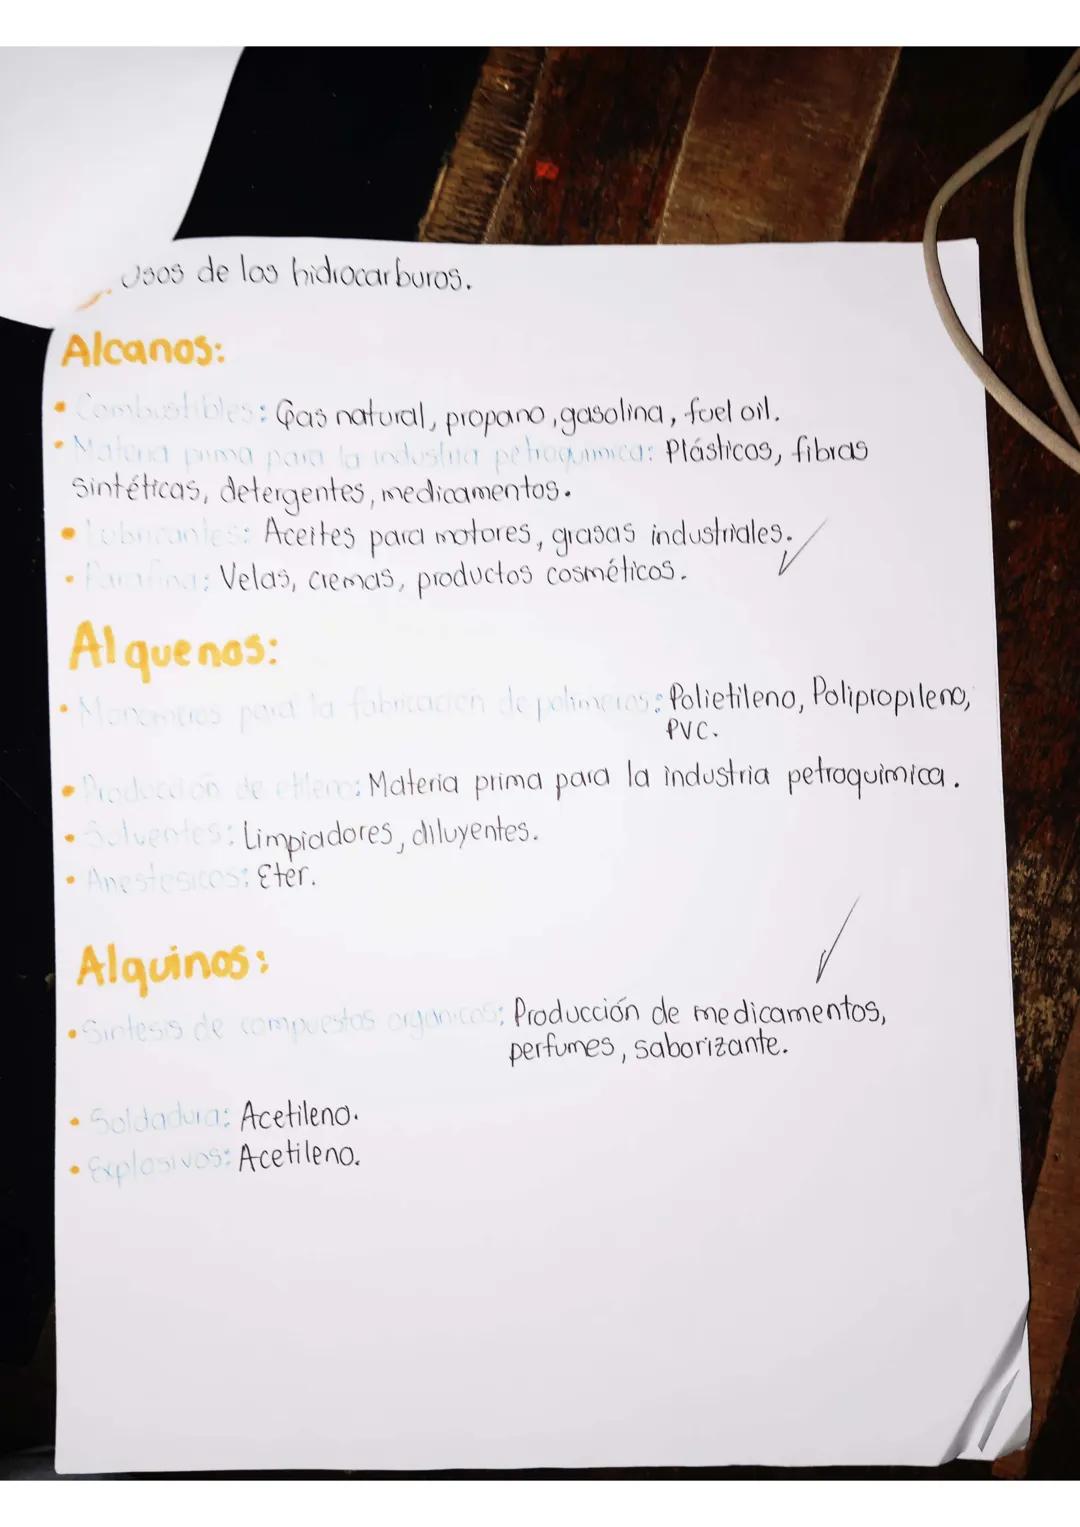 Usos de los hidrocarburos.
Alcanos:
• Combustibles: Gas natural, propano, gasolina, fuel oil.
• Materia prima para la industria petroquímica: Plásticos, fibras
sintéticas, detergentes, medicamentos.
• Lubricantes: Aceites para motores, grasas industriales.
• Parafina: Velas, cremas, productos cosméticos.
Alquenos:
• Monomeros para la fabricación de polimeros: Polietileno, Polipropileno,
PVC.
• Producción de etileno: Materia prima para la industria petroquimica.
• Solventes: Limpiadores, diluyentes.
• Anestesicos: Eter.
Alquinos:
• Sintesis de compuestos organicos: Producción de medicamentos,
perfumes, saborizante.
• Soldadura: Acetileno.
• Explosivos: Acetileno.